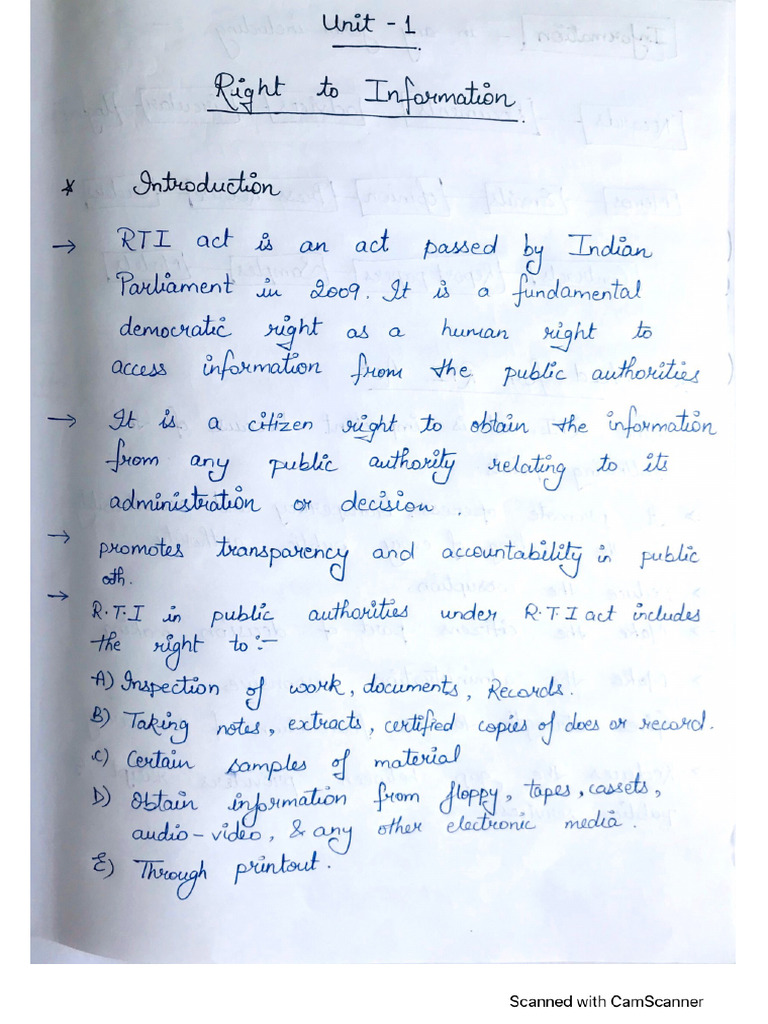 Unit - 1
Right to Information.
* Introduction
→ RTI act is an act passed by Indian
Parliament in 2009. It is a fundamental
democratic right as a human right to
access information from the public authorities
→ It is a citizen right to obtain the information
from any public authority relating to its
administration or decision.
→ promotes transparency and accountability in public
oth.
→ R.T.I in public authorities under R.T.I act includes
the right to:-
A) Inspection of work, documents, Records.
B) Taking notes, extracts, certified copies of docs or record.
C) Certain samples of material
D) Obtain information from floppy, tapes, cassets,
audio-video, & any other electronic media.
E) Through printout.
Scanned with CamScanner